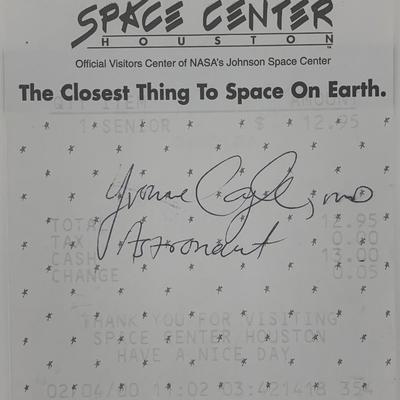 SPACE CENTER
HOUSTON
TM
Official Visitors Center of NASA's Johnson Space Center
The Closest Thing To Space On Earth.
QTY ITEM AMOUNT
1 SENIOR $ 12.95
Yvonne Cagle, MD
TOTAL 12.95
Astronaut
TAX 0.00
CASH 13.00
CHANGE 0.05
THANK YOU FOR VISITING
SPACE CENTER HOUSTON
HAVE A NICE DAY
02/04/00 11:02 03:421418 354